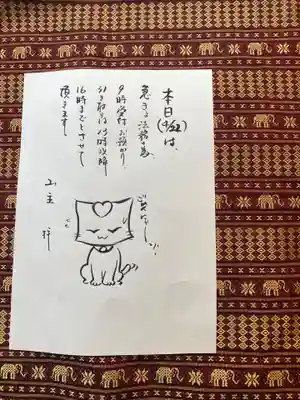 本日(9/22)は、
急きょ法務の為、
9時受付お預かり、
お引き取りは13時以降
16時までとさせて
頂きます。
山主 拝
ごめんにゃ